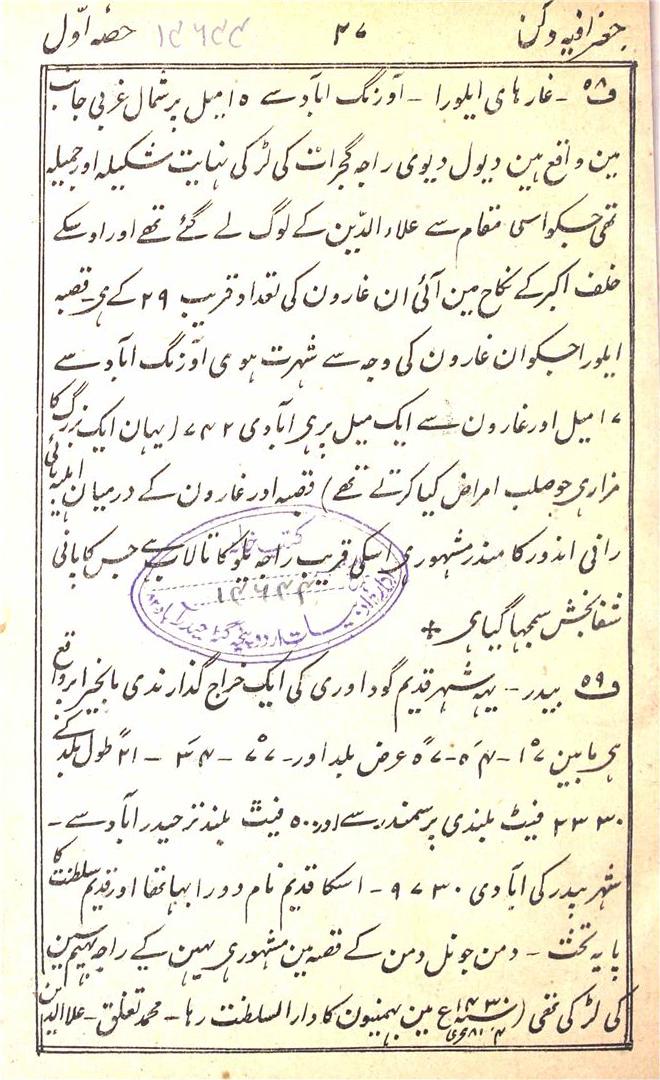 جغرافیہ دکن ۲۷ حصہ اوّل
ف۵۸ - غار ہای ایلورا - اَوزنگ اباد سے ۱۵ میل پر شمال غربی جانب
مین واقع ہین دیول دیوی راجہ گجرات کی لڑکی نہایت شکیلہ اور جمیلہ
تھی جسکو اسی مقام سے علاء الدّین کے لوگ لے گئے تھے اور اوسکے
خلف اکبر کے نکاح مین آئی ان غارون کی تعداد قریب ۲۹ کے ہی - قصبہ
ایلورا جسکو ان غارون کی وجہ سے شہرت ہوی اَوزنگ اباد سے
۱۷ میل اور غارون سے ایک میل پر ہی ابادی ۷۴۲ (یہان ایک بزرگ کا
مزار ہی جو صلب امراض کیا کرتے تھے) قصبہ اور غارون کے درمیان اہلیہ بائی
رانی اندور کا مندر مشہور ہی اسکی قریب راجہ یلو کا تالاب ہے جس کا پانی
شفا بخش سمجہا گیا ہی +
ف۵۹ بیدر - یہہ شہر قدیم گوداوری کی ایک خراج گذار ندی مانجیرا پر واقع
ہی مابین ۱۷ْ - ۵۴َ عرض بلد اور - ۷۷ْ - ۳۴َ - ۲۱ً طول بلد کے
۲۳۳۰ فیٹ بلندی پر سمندر سے اور ۵۰۰ فیٹ بلند تر حیدرآباد سے -
شہر بیدر کی ابادی ۹۷۳۰ - اسکا قدیم نام دورابہا تھا اور قدیم سلطنت کا
پایہ تخت - دمن جو نل دمن کے قصہ مین مشہور ہی یہین کے راجہ بہیم سین
کی لڑکی تھی (سنہ ۱۴۳۰ع مین بہمنیون کا دار السلطنت رہا - محمد تغلق - علاالدین
کتب خانہ